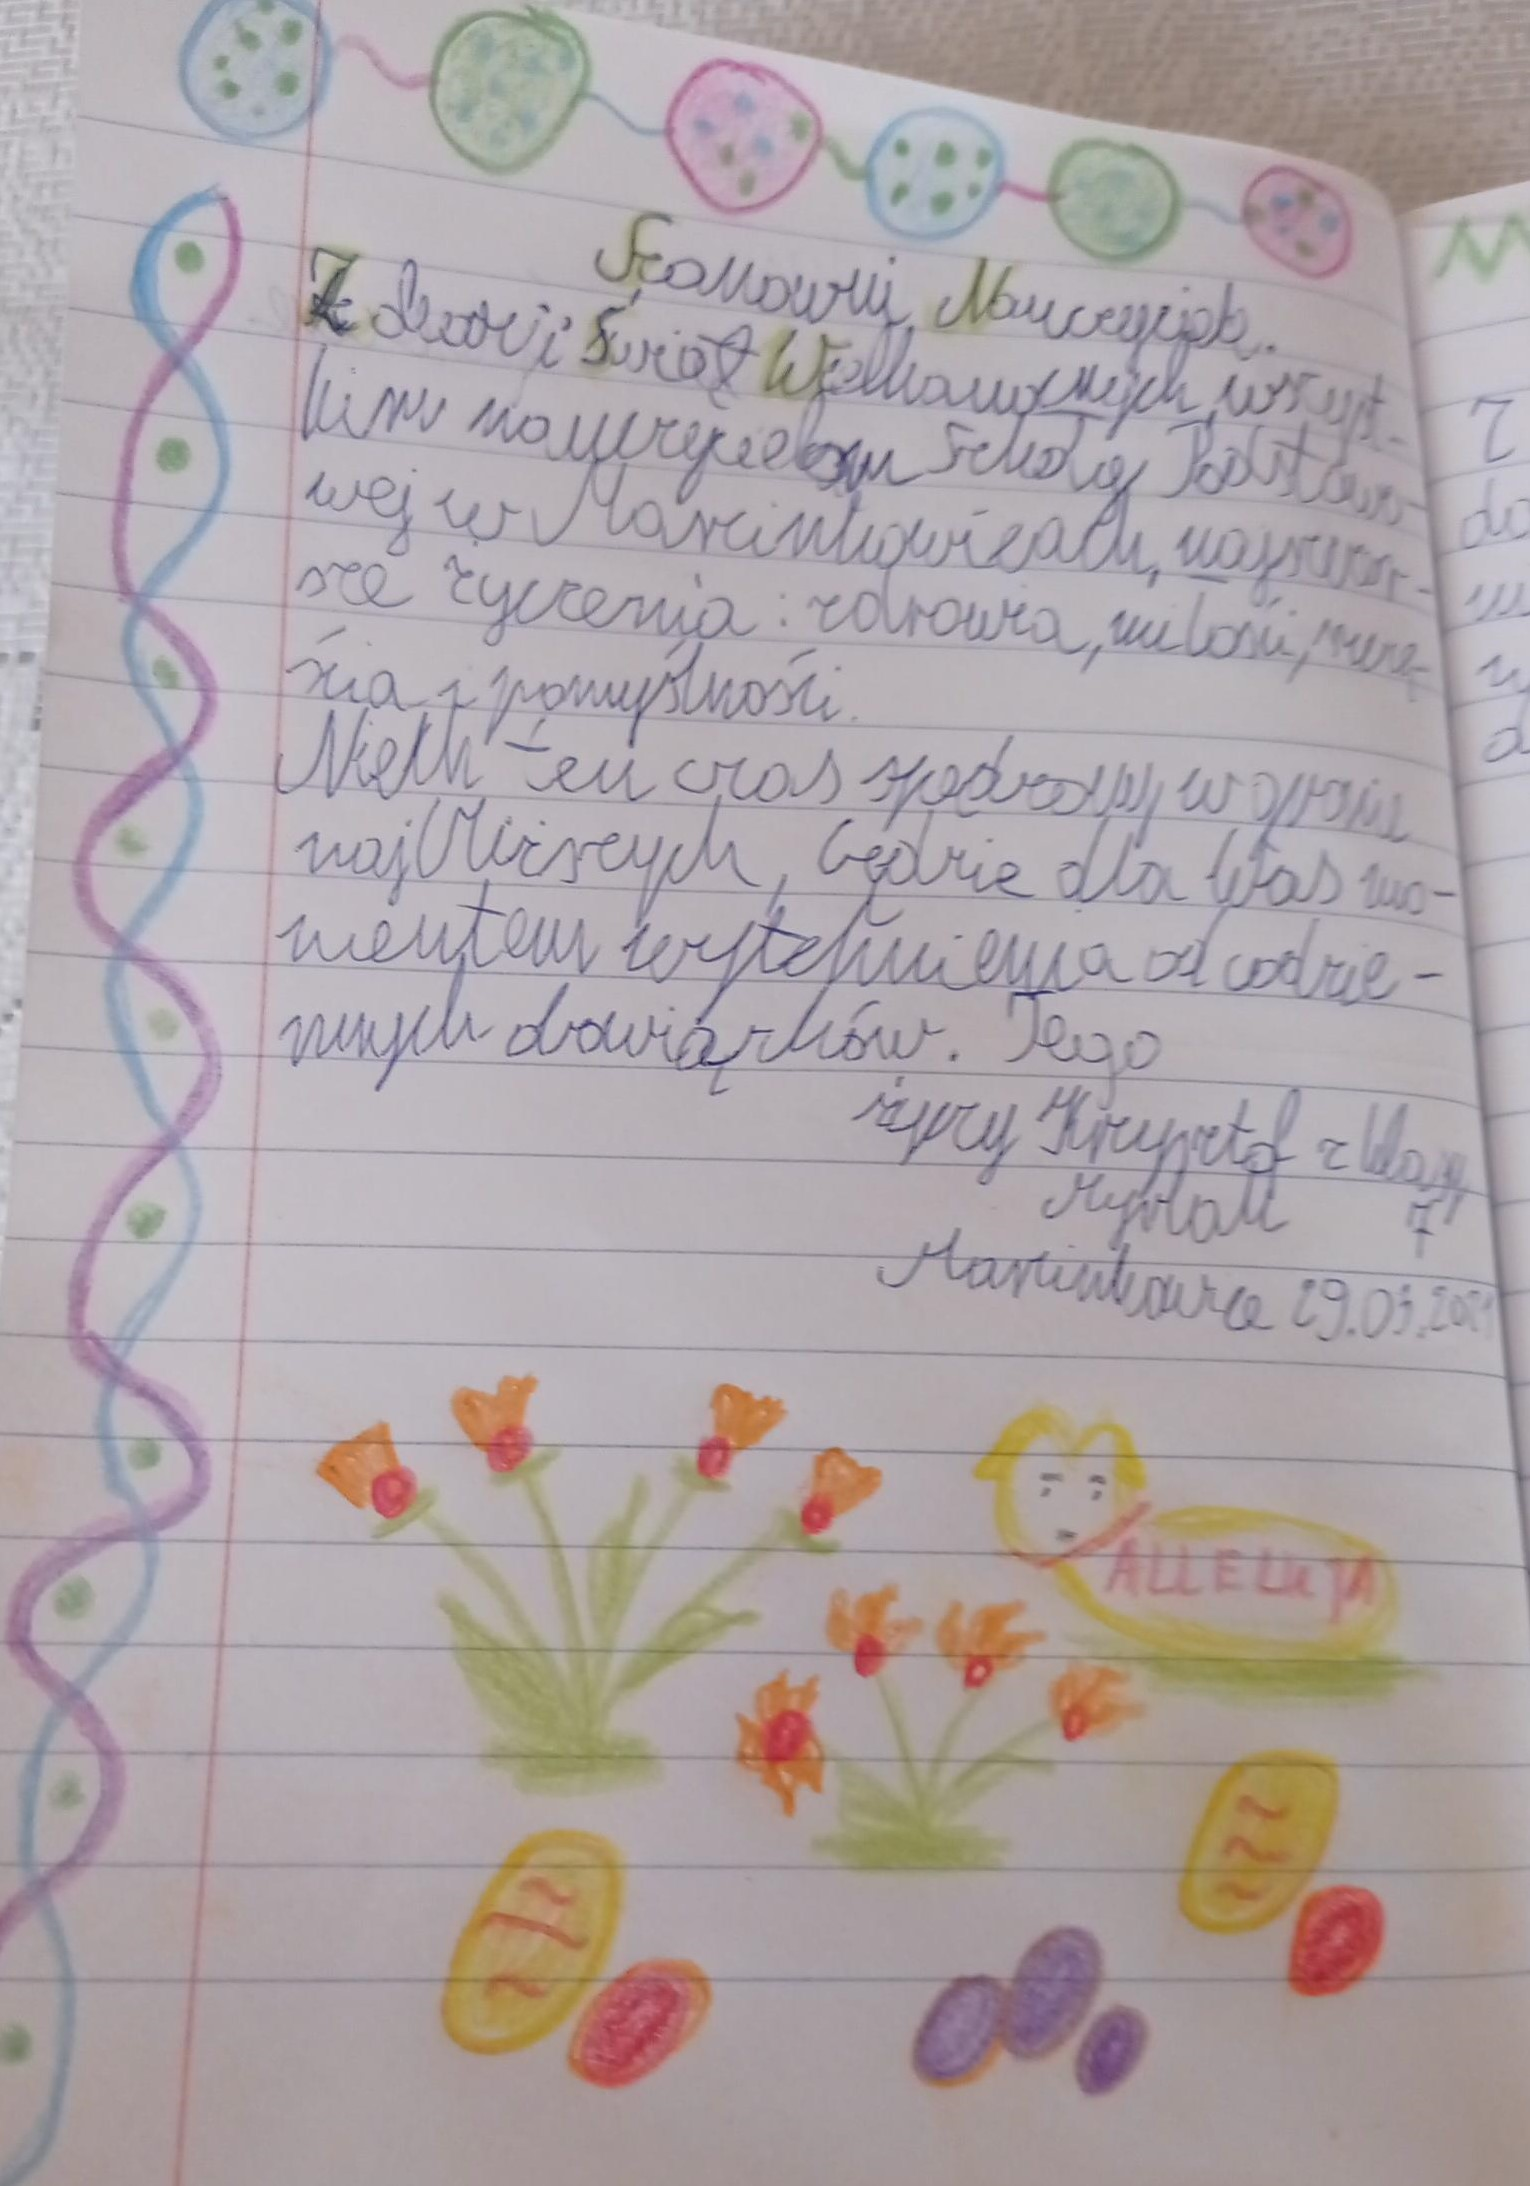 Szanowni Nauczyciele.
Z okazji Świąt Wielkanocnych, wszyst-
kim nauczycielom Szkoły Podstawo-
wej w Marcinkowicach, najszczer-
sze życzenia: zdrowia, miłości, szczę-
ścia i pomyślności.
Niech ten czas spędzony w gronie
najbliższych, będzie dla Was mo-
mentem wytchnienia od codzie-
nnych obowiązków. Tego
życzy Krzysztof z klasy
7
Marcinkowice 29.03.2021
ALLELUJA